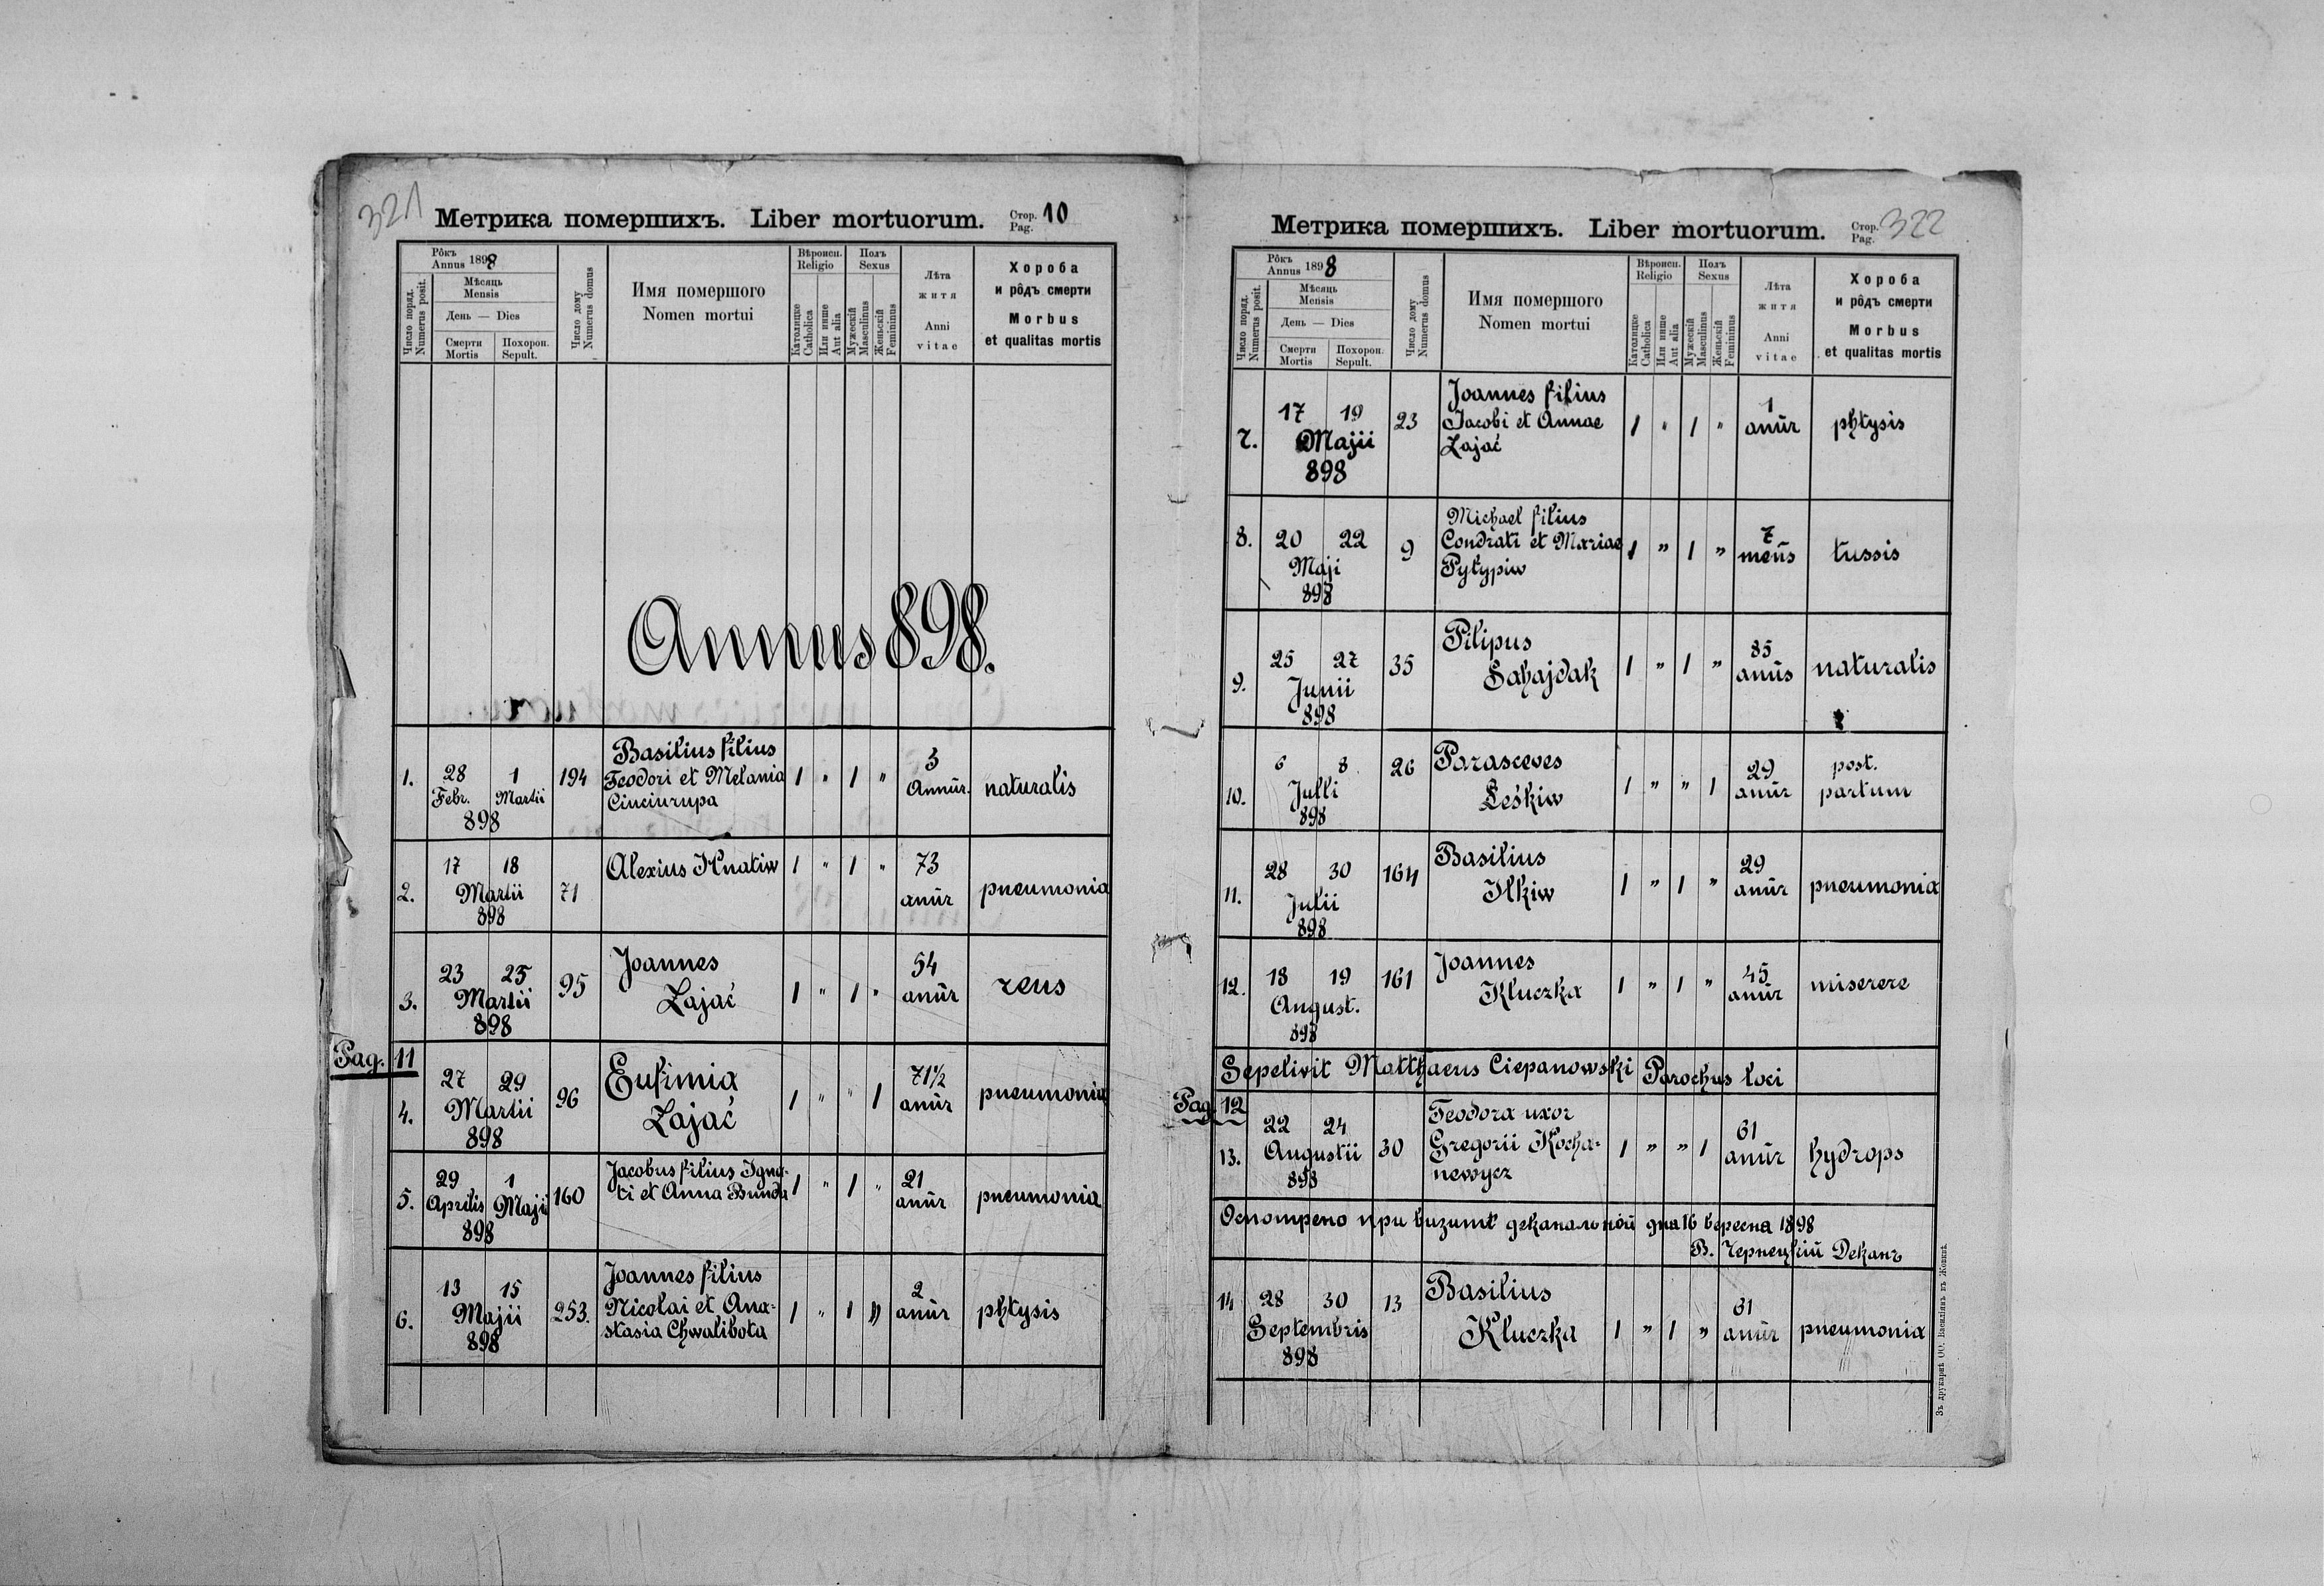 321
Метрика помершихъ. Liber mortuorum. Стор. Pag. 10
Рôкъ Annus 1898
Число поряд. Numerus posit.
Мѣсяць Mensis
День — Dies
Смерти Mortis
Похорон. Sepult.
Число дому Numerus domus
Имя помершого Nomen mortui
Вѣроисп. Religio
Католицке Catholica
Или инше Aut alia
Полъ Sexus
Мужескій Masculinus
Женьскій Femininus
Лѣта житя Anni vitae
Хороба и рôдъ смерти Morbus et qualitas mortis
Annus 898.
1. 28 Febr. 1 Martii 898 194 Basilius filius Teodori et Melania Ciuciurupa 1 " 1 " 3 Annūr. naturalis
2. 17 18 Martii 898 71 Alexius Hnatiw 1 " 1 " 73 anūr pneumonia
3. 23 25 Martii 898 95 Joannes Zajać 1 " 1 " 54 anūr reus
Pag. 11
4. 27 29 Martii 898 96 Eufimia Zajać 1 " " 1 71½ anūr pneumonia
5. 29 Aprilis 1 Maji 898 160 Jacobus filius Igna-ti et Anna Bunda 1 " 1 " 21 anūr pneumonia
6. 13 15 Majii 898 253. Joannes filius Nicolai et Ana-stasia Chwalibota 1 " 1 " 2 anūr phtysis
Метрика помершихъ. Liber mortuorum. Стор. Pag. 322
Рôкъ Annus 1898
Число поряд. Numerus posit.
Мѣсяць Mensis
День — Dies
Смерти Mortis
Похорон. Sepult.
Число дому Numerus domus
Имя помершого Nomen mortui
Вѣроисп. Religio
Католицке Catholica
Или инше Aut alia
Полъ Sexus
Мужескій Masculinus
Женьскій Femininus
Лѣта житя Anni vitae
Хороба и рôдъ смерти Morbus et qualitas mortis
7. 17 19 Majii 898 23 Joannes filius Jacobi et Annae Zajać 1 " 1 " 1 anūr phtysis
8. 20 22 Maji 898 9 Michael filius Condrati et Mariae Pytypiw 1 " 1 " 7 mens tussis
9. 25 27 Junii 898 35 Pilipus Sahajdak 1 " 1 " 85 anūs naturalis
10. 6 8 Julli 898 26 Parasceves Leśkiw 1 " " 1 29 anūr post. partum
11. 28 30 Julii 898 164 Basilius Ilkiw 1 " 1 " 29 anūr pneumonia
12. 18 19 August. 898 161 Joannes Kluczka 1 " 1 " 45 anūr miserere
Sepelivit Matthaeus Ciepanowski Parochus loci
Pag. 12
13. 22 24 Augustii 898 30 Teodora uxor Gregorii Kocha-newycz 1 " " 1 61 anūr hydrops
Осмотрено при визитѣ деканальнôй дна 16 вересна 1898
В. Чернецкій Деканъ
14 28 30 Septembris 898 13 Basilius Kluczka 1 " 1 " 61 anūr pneumonia
Зъ друкарнѣ ОО. Василіянъ въ Жовквѣ.